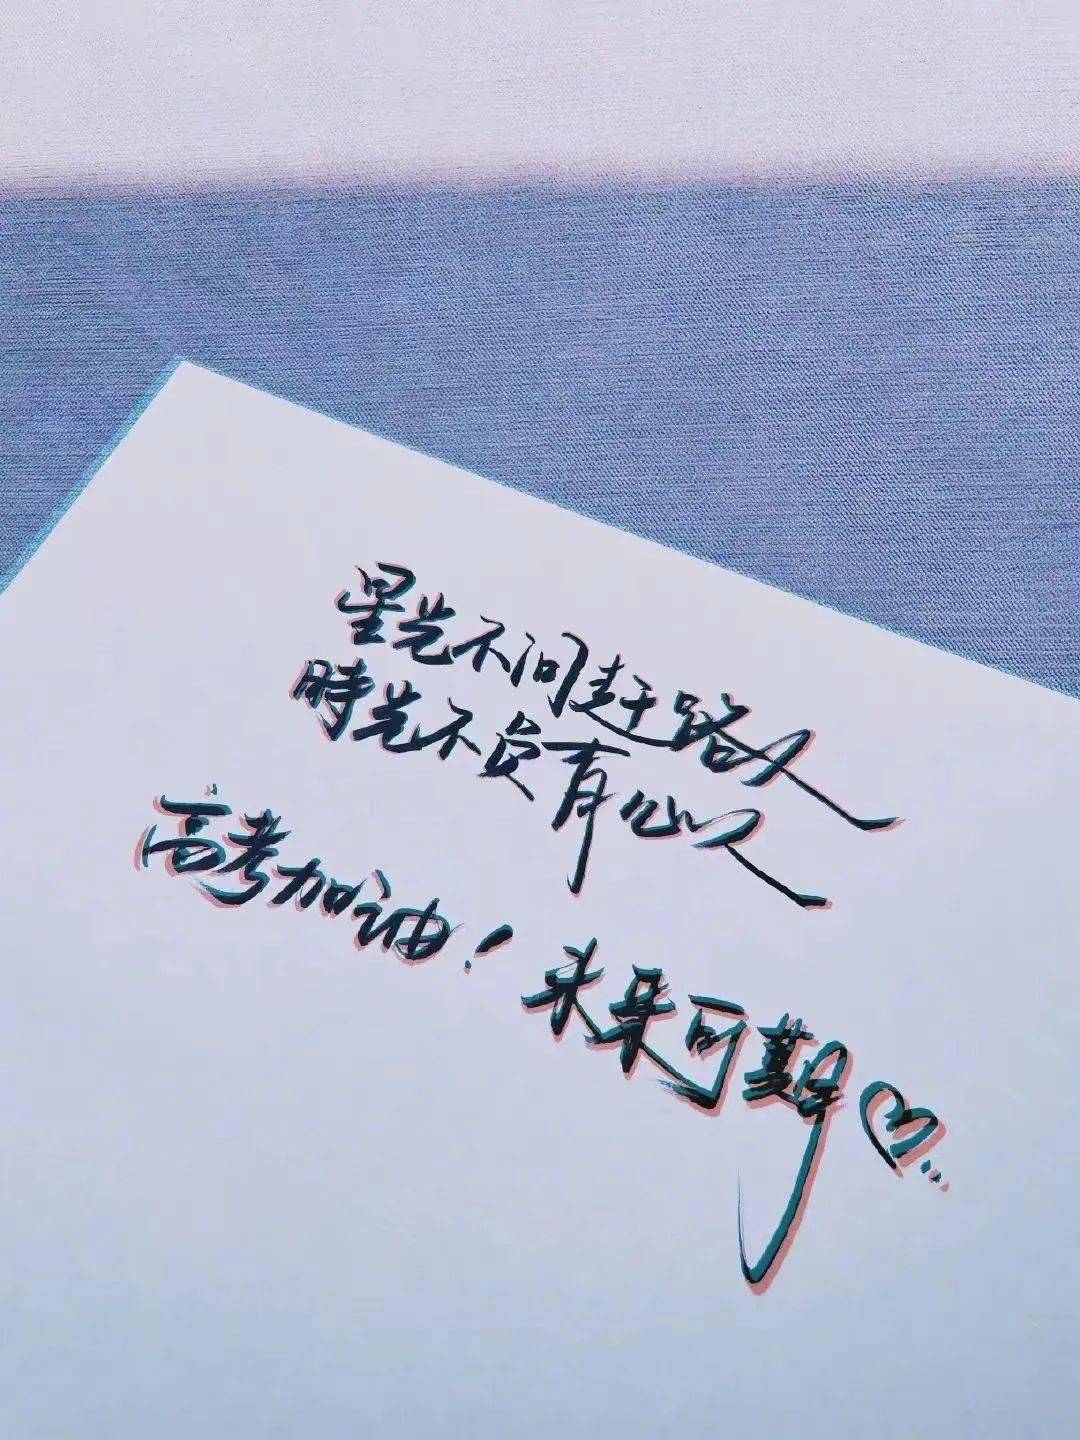 星光不问赶路人
時光不负有心人
高考加油！未来可期